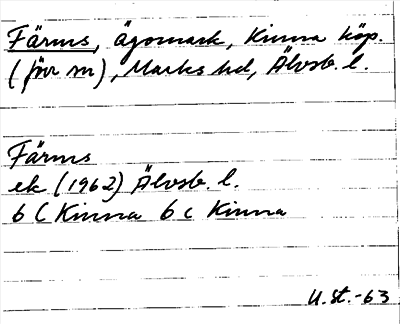 Färms, ägomark, Kinna köp.
(förr sn), Marks hd, Älvsb. l.
Färms
ek (1962) Älvsb l.
6 C Kinna 6 c Kinna
U. St. -63